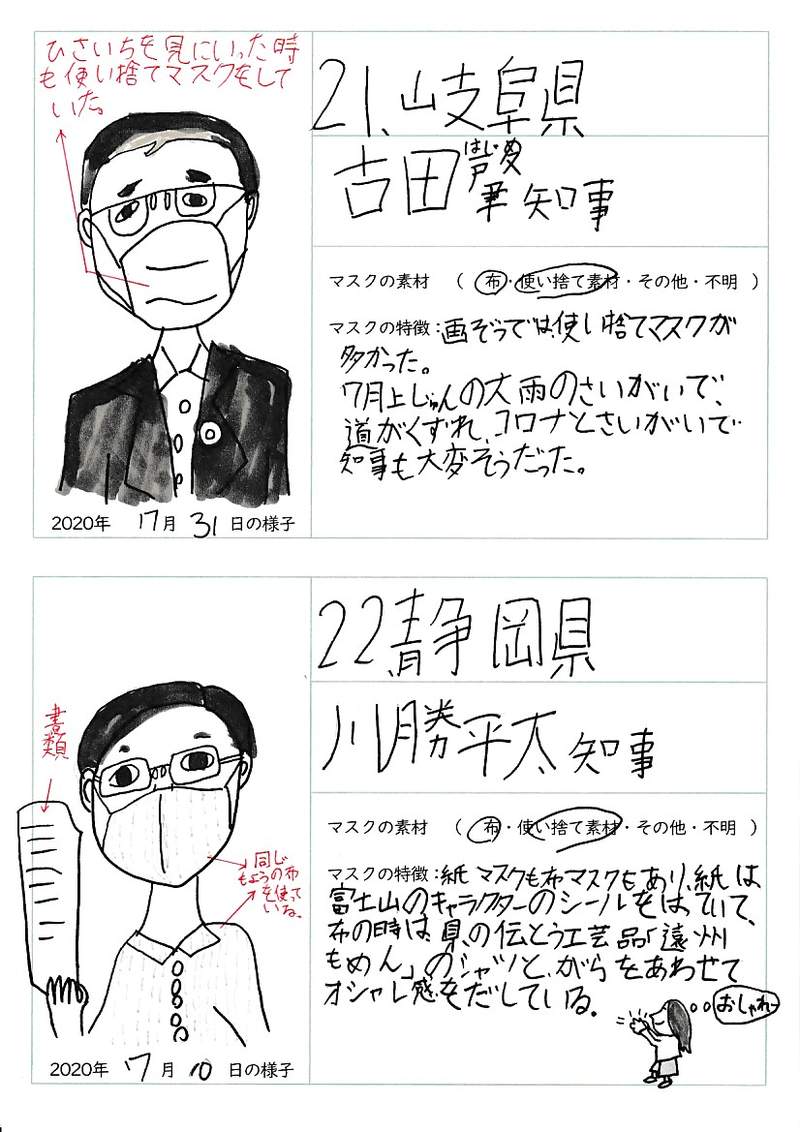 ひさいちを見にいった時
も使い捨てマスクをして
いた。
21、岐阜県
はじめ
古田肇知事
マスクの素材 （ 布・使い捨て素材・その他・不明 ）
マスクの特徴：画ぞうでは、使い捨てマスクが
多かった。
7月上じゅんの大雨のさいがいで、
道がくずれ、コロナとさいがいで
知事も大変そうだった。
2020年 7月 31日の様子
22、静岡県
川勝平太知事
書類
マスクの素材 （ 布・使い捨て素材・その他・不明 ）
マスクの特徴：紙マスクも布マスクもあり、紙は
富士山のキャラクターのシールをはっていて、
布の時は、県の伝とう工芸品「遠州
もめん」のシャツと、がらをあわせて
オシャレ感をだしている。
同じ
もようの布
を使って
いる。
おしゃれー
2020年 7月 10日の様子